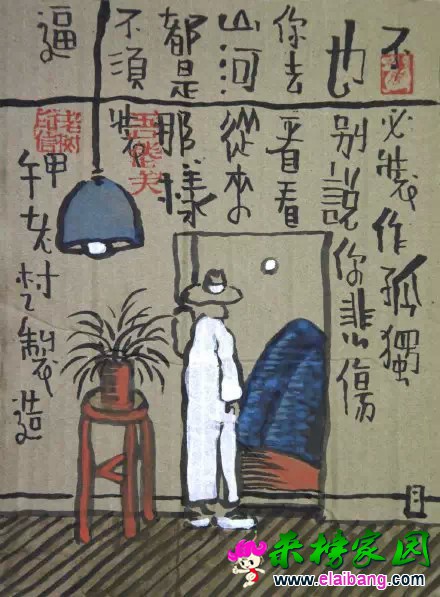 不必裝作孤獨
也别說你悲傷
你去看看
山河從来
都是那樣
不須裝
逼
甲午老村製造
老树
来榜家园
www.elaibang.com